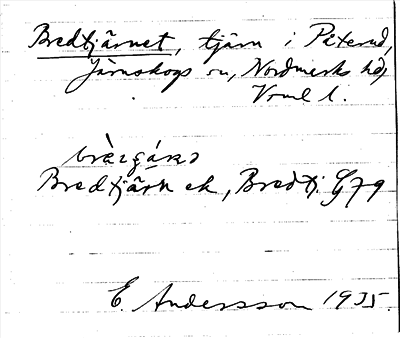 Bredtjärnet, tjärn i Peterud,
Järnskogs sn, Nordmarks hd,
Vrml l.
Bredtjärn ek, Bredtj. G79
E. Andersson 1935.